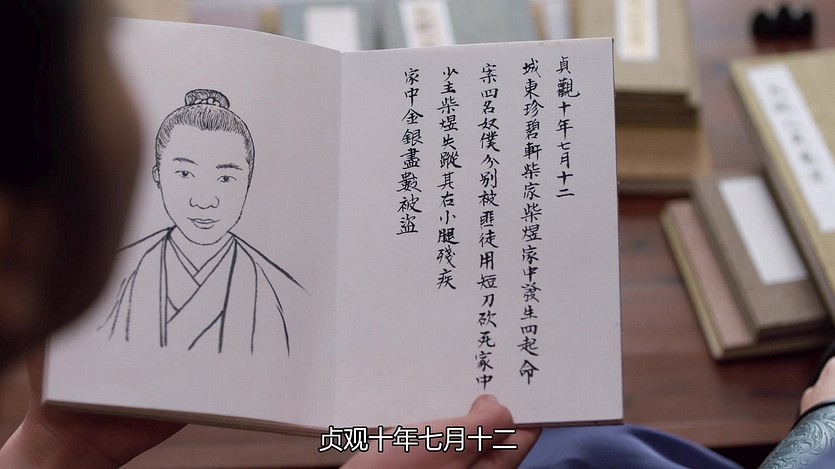 貞觀十年七月十二
城東珍碧軒柴家柴煜家中發生四起命
案四名奴僕分别被匪徒用短刀砍死家中
少主柴煜失蹤其右小腿殘疾
家中金銀盡數被盜
贞观十年七月十二